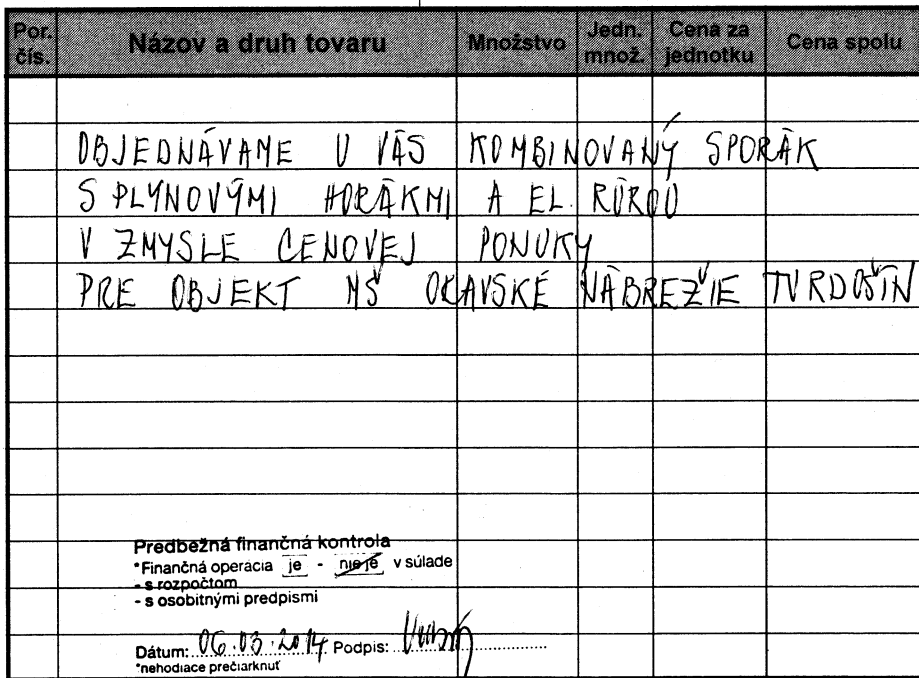 Por. čís. Názov a druh tovaru Množstvo Jedn. množ. Cena za jednotku Cena spolu
OBJEDNÁVAME U VÁS KOMBINOVANÝ SPORÁK
S PLYNOVÝMI HORÁKMI A EL. RÚROU
V ZMYSLE CENOVEJ PONUKY
PRE OBJEKT MŠ ORAVSKÉ NÁBREŽIE TVRDOŠÍN
Predbežná finančná kontrola
*Finančná operácia je - nie je v súlade
- s rozpočtom
- s osobitnými predpismi
Dátum: 06.03.2014 Podpis:
*nehodiace prečiarknuť